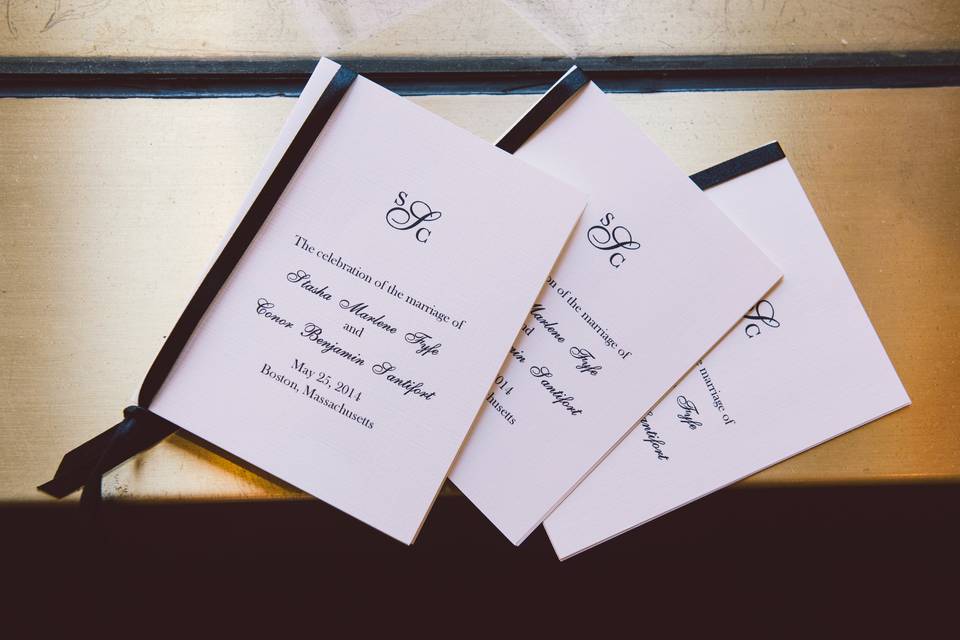 S S C
The celebration of the marriage of
Stasha Marlene Fyfe
and
Conor Benjamin Santifort
May 25, 2014
Boston, Massachusetts
S S C
on of the marriage of
Marlene Fyfe
nd
min Santifort
2014
husetts
S C
marriage of
Fyfe
Santifort